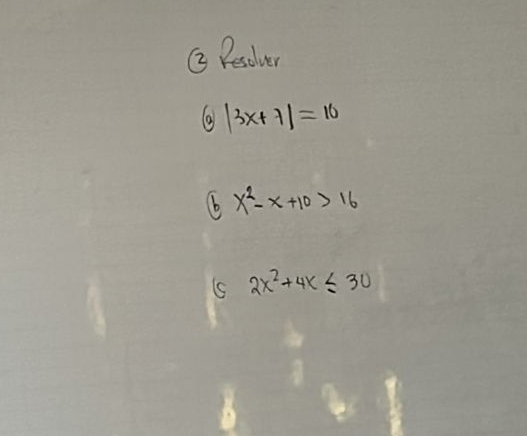 ② Resolver
ⓐ |3x+7|=16
ⓑ x²-x+10>16
ⓒ 2x²+4x≤30